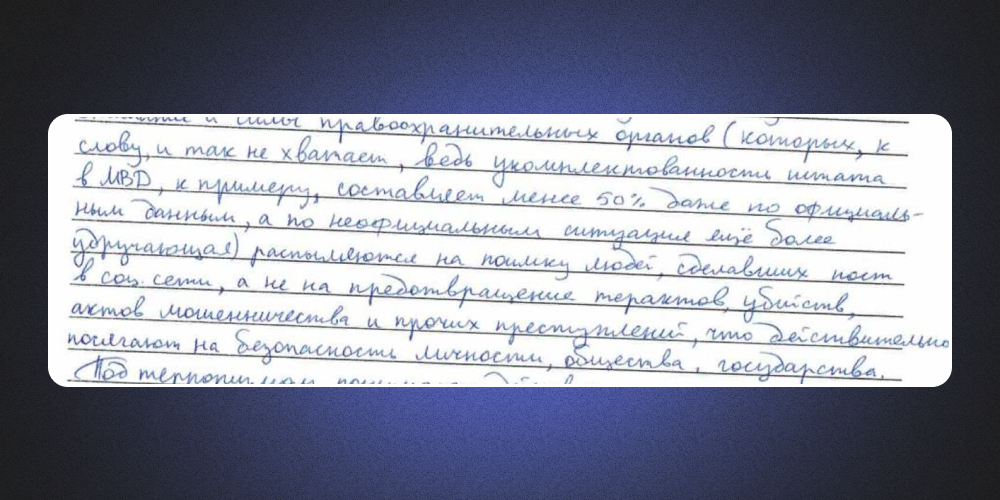 и силы правоохранительных органов (которых, к
слову, и так не хватает, ведь укомплектованность штата
в МВД, к примеру, составляет менее 50% даже по официаль-
ным данным, а по неофициальным ситуация ещё более
удручающая) распыляются на поимку людей, сделавших пост
в соц. сети, а не на предотвращение терактов, убийств,
актов мошенничества и прочих преступлений, что действительно
посягают на безопасность личности, общества, государства.
Под